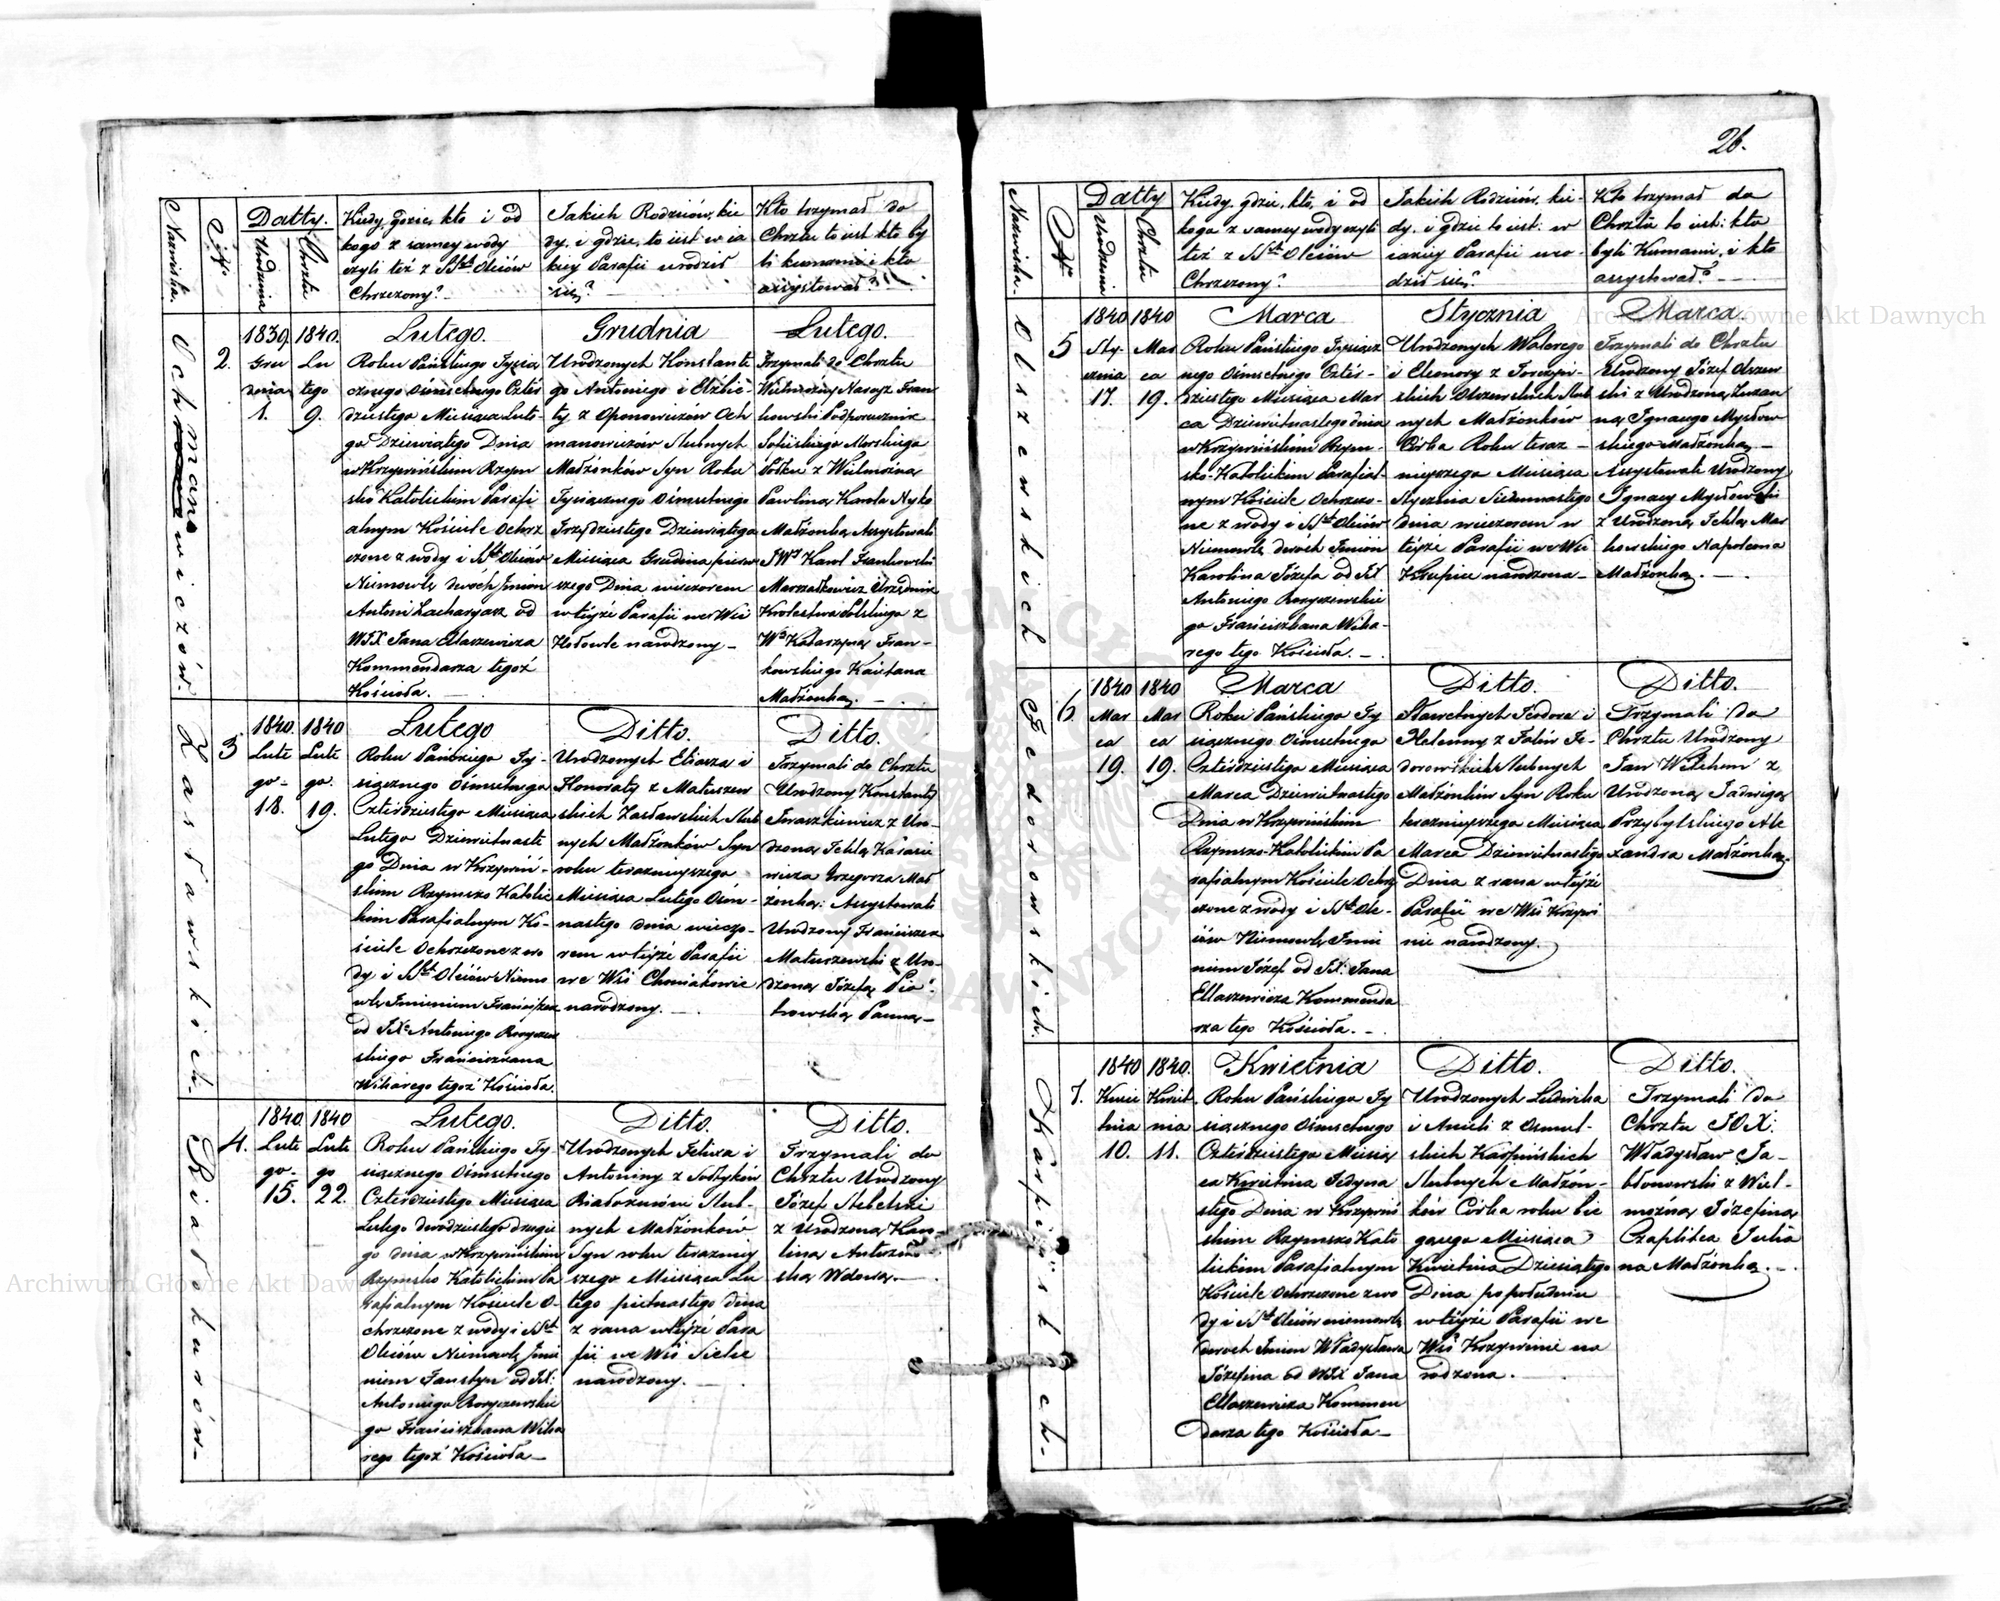 Nazwiska.
Datty.
Urodzenia
Chrztu
Kiedy, gdzie, kto i od
kogo z samey wody
czyli też z SStch Oleiów
Chrzczony?
Jakich Rodziców, kie
dy, i gdzie, to iest w ia
kiey Parafii urodził
się?
Kto trzymał do
Chrztu to iest kto by
li kumami i kto
assystował?
Ochmanowiczów.
2.
1839. 1840.
Gru Lu
dnia tego
1. 9.
Lutego.
Roku Pańskiego Tysią
cznego Osmsetnego Czter
dziestego Miesiąca Lute
go Dziewiątego Dnia
w Krzywińskim Rzym
sko Katolickim Parafi
alnym Kościele Ochrz
czone z wody i SStch Oleiów
Niemowle dwóch Imion
Antoni Zacharyasz od
WJX Jana Ellaszewicza
Kommendarza tegoż
Kościoła.
Grudnia
Urodzonych Konstante
go Antoniego i Elżbie
ty z Oponowiczow Och
manowiczów Slubnych
Małżonków Syn Roku
Tysiącznego Osmsetnego
Trzydziestego Dziewiątego
Miesiąca Grudnia pierw
szego Dnia wieczorem
w teyże Parafii we Wsi
narodzony
Lutego.
Trzymali do Chrztu
Fran
kowski Podporucznik
Pułku z Wielmożną
Pawliną Karola
Małżonką Assystowali
JWJ Karol Frankowski
Królestwa Polskiego z
Wą Katarzyną Fran
kowskiego Kaietana
Małżonką.
Zasławskich.
3
1840. 1840
Lute Lute
go go.
18. 19.
Lutego
Roku Pańskiego Ty
siącznego Osmsetnego
Czterdziestego Miesiąca
Lutego Dziewietnaste
go Dnia w Krzywiń
skim Rzymsko Katolic
kim Parafialnym Ko
ściele Ochrzczone z wo
dy i SStch Oleiów Niemo
wle Imieniem Franciszek
od JXa Antoniego Boryszew
skiego Franciszkana
Wikarego tegoż Kościoła.
Ditto.
Urodzonych Eliasza i
Honoraty z Matuszew
skich Zasławskich Slub
nych Małżonków Syn
roku teraznieyszego
Miesiąca Lutego Osm
nastego dnia wieczo
rem w teyże Parafii
we Wsi Choniakowie
narodzony.
Ditto.
Trzymali do Chrztu
Urodzony Konstanty
Iwaszkiewicz z Uro
dzoną Teklą
Grzegorza Mał
żonką. Assystowali
Urodzony Franciszek
Matuszewski z Uro
dzoną Józefą Pio
trowską Panną
Białokurów
4.
1840. 1840
Lute Lute
go go
15. 22.
Lutego.
Roku Pańskiego Ty
siącznego Osmsetnego
Czterdziestego Miesiąca
Lutego dwodziestego drugie
go dnia w Krzywińskim
Rzymsko Katolickim Pa
rafialnym Kościele O
chrzczone z wody i SStch
Oleiów Niemowle Imie
niem Faustyn od JX.
Antoniego Boryszewskie
go Franciszkana Wika
rego tegoż Kościoła
Ditto.
Urodzonych Felixa i
Antoniny z Sołtyków
Białokurów Slub
nych Małżonków
Syn roku terazniey
szego Miesiąca Lu
tego pietnastego dnia
z rana w teyże Para
fii we Wsi
narodzony.
Ditto.
Trzymali do
Chrztu Urodzony
Józef Stebelski
z Urodzoną Karo
liną
Wdową.
26.
Nazwiska.
Datty
Urodzenia
Chrztu
Kiedy, gdzie, kto, i od
kogo z samey wody czyli
też z SStch Oleiów
Chrzczony?
Jakich Rodziców, kie
dy, i gdzie to iest: w
iakiey Parafii uro
dził się?
Kto trzymał do
Chrztu to iest: kto
byli Kumami, i kto
assystował?
Olszewskich
5
1840 1840
Sty Mar
cznia ca
17. 19.
Marca
Roku Pańskiego Tysiącz
nego Osmsetnego Czter
dziestego Miesiąca Mar
ca Dziewietnastego dnia
w Krzywińskim Rzym
sko Katolickim Parafial
nym Kościele Ochrzczo
ne z wody i SStch Oleiów
Niemowle dwóch Imion
Karolina Józefa od JX
Antoniego Boryszewskie
go Franciszkana Wika
rego tego Kościoła.
Stycznia
Urodzonych Walerego
i Eleonory z Torczyń
skich Olszewskich Slub
nych Małżonków
Córka Roku teraz
nieyszego Miesiąca
Stycznia Siedmnastego
dnia wieczorem w
teyże Parafii we Wsi
Krupice narodzona
Marca
Trzymali do Chrztu
Urodzony Józef Olszew
ski z Urodzoną Zuzan
ną Ignacego Mysłow
skiego Małżonką
Assystowali Urodzony
Ignacy Mysłowski
z Urodzoną Teklą Mar
kowskiego Napoleona
Małżonką.
Fedorowskich.
6.
1840 1840
Mar Mar
ca ca
19. 19.
Marca
Roku Pańskiego Ty
siącznego Osmsetnego
Czterdziestego Miesiąca
Marca Dziewietnastego
Dnia w Krzywińskim
Rzymsko-Katolickim Pa
rafialnym Kościele Ochrz
czone z wody i SStch Ole
iów Niemowle Imie
niem Józef od JX. Jana
Ellaszewicza Kommenda
rza tego Kościoła.
Ditto.
Sławetnych Teodora i
Helenny z Fe
dorowskich slubnych
Małżonków Syn Roku
teraznieyszego Miesiąca
Marca Dziewietnastego
Dnia z rana w teyże
Parafii we Wsi Krzywi
nie narodzony.
Ditto.
Trzymali do
Chrztu Urodzony
Jan Wilchem z
Urodzoną Jadwigą
Przybylskiego Ale
xandra Małżonką.
Karpińskich.
7.
1840 1840.
Kwie Kwiet
tnia nia
10. 11.
Kwietnia
Roku Pańskiego Ty
siącznego Osmsetnego
Czterdziestego Miesią
ca Kwietnia Jedyna
stego Dnia w Krzywiń
skim Rzymsko Kato
lickim Parafialnym
Kościele Ochrzczone z wo
dy i SStch Oleiów niemowle
dwoch Imion Władysława
Józefina od WJX Jana
Ellaszewicza Kommen
darza tego Kościoła
Ditto.
Urodzonych Ludwika
i Anieli z Osmul
skich Karpińskich
Slubnych Małżon
ków Córka roku bie
gącego Miesiąca
Kwietnia Dziesiątego
Dnia po południu
w teyże Parafii we
Wsi Krzywinie na
rodzona.
Ditto.
Trzymali do
Chrztu JOX.
Władysław Ja
błonowski z Wiel
możną Józefiną
Czaplica Julia
na Małżonką.
Archiwum Główne Akt Dawnych
Archiwum Główne Akt Dawnych